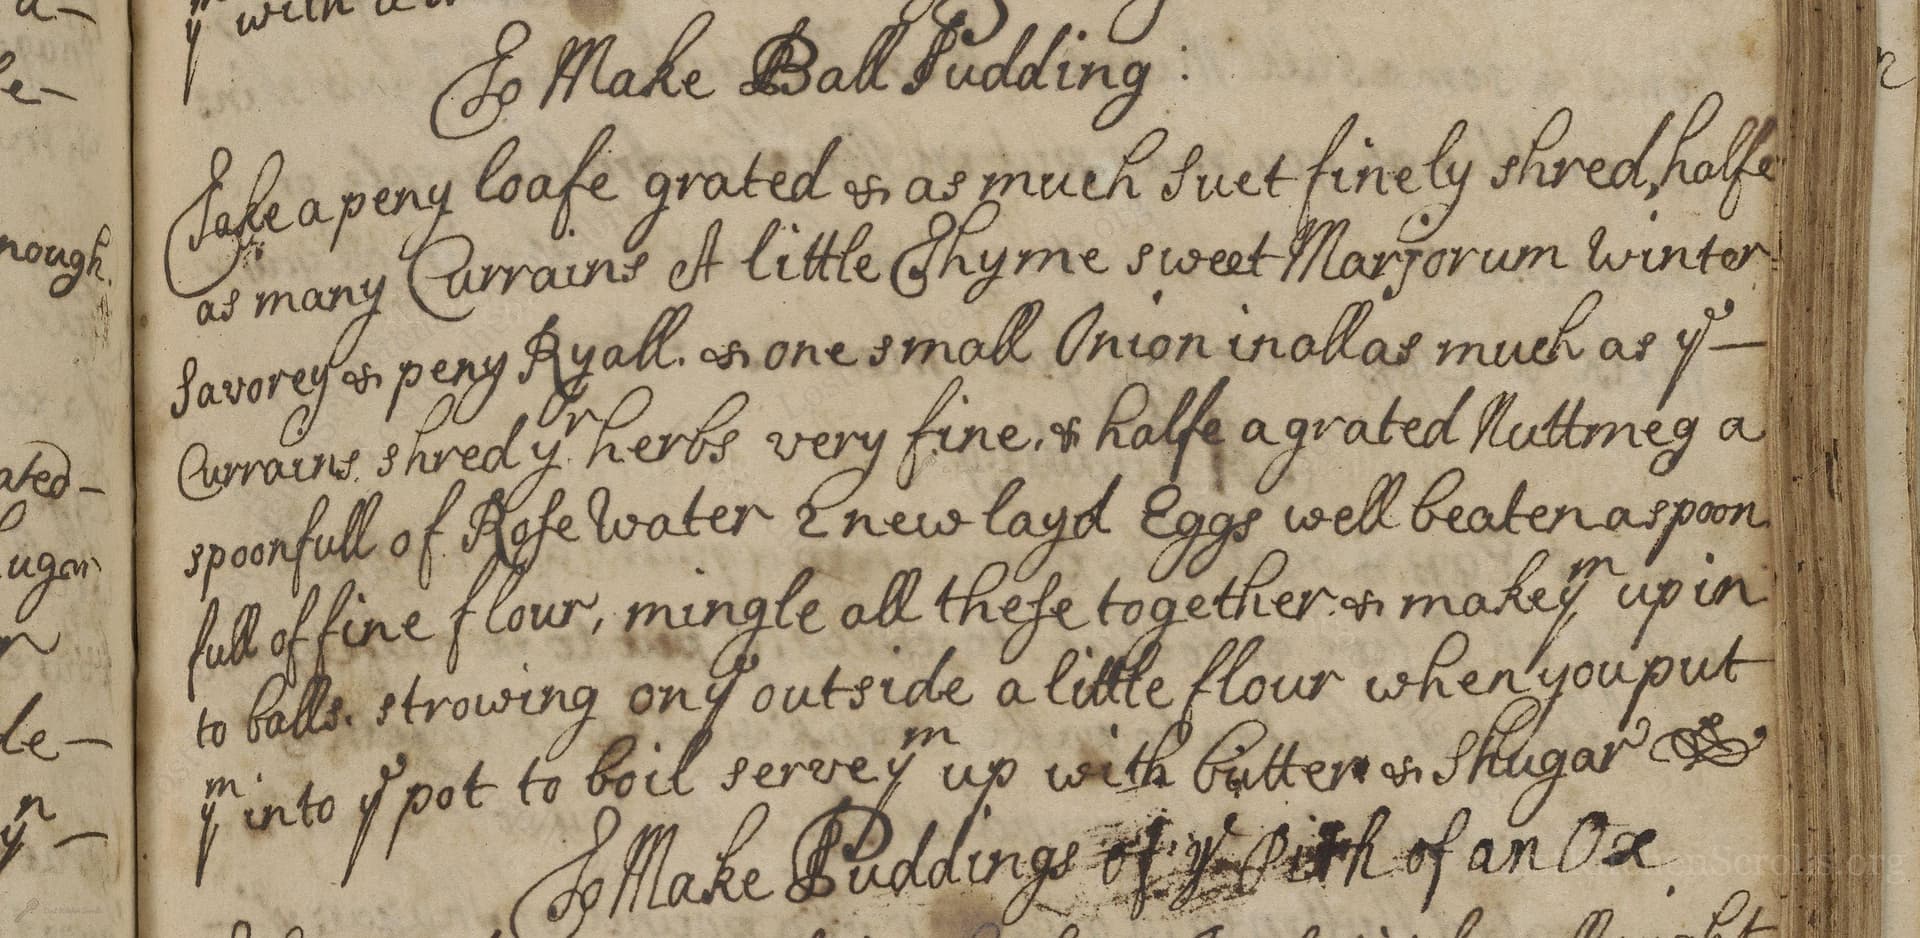 a-
ym with a
le-
To Make Ball Pudding:
Take a peny loafe grated & as much Suet finely shred, halfe
nough.
as many Currains A little Thyme sweet Marjorum Winter
Savorey & peny Ryall. & one small Onion in all as much as ye -
ated -
Currains. shred yr herbs very fine. & halfe a grated Nuttmeg a
ugar
spoonfull of Rose Water 2 new layd Eggs well beaten a spoon
full of fine flour, mingle all these together & make ym up in
to balls. strowing on ye outside a little flour when you put
le -
ym into ye pot to boil serve ym up with butter & Shugar
yn -
To Make Puddings of ye Pith of an Ox